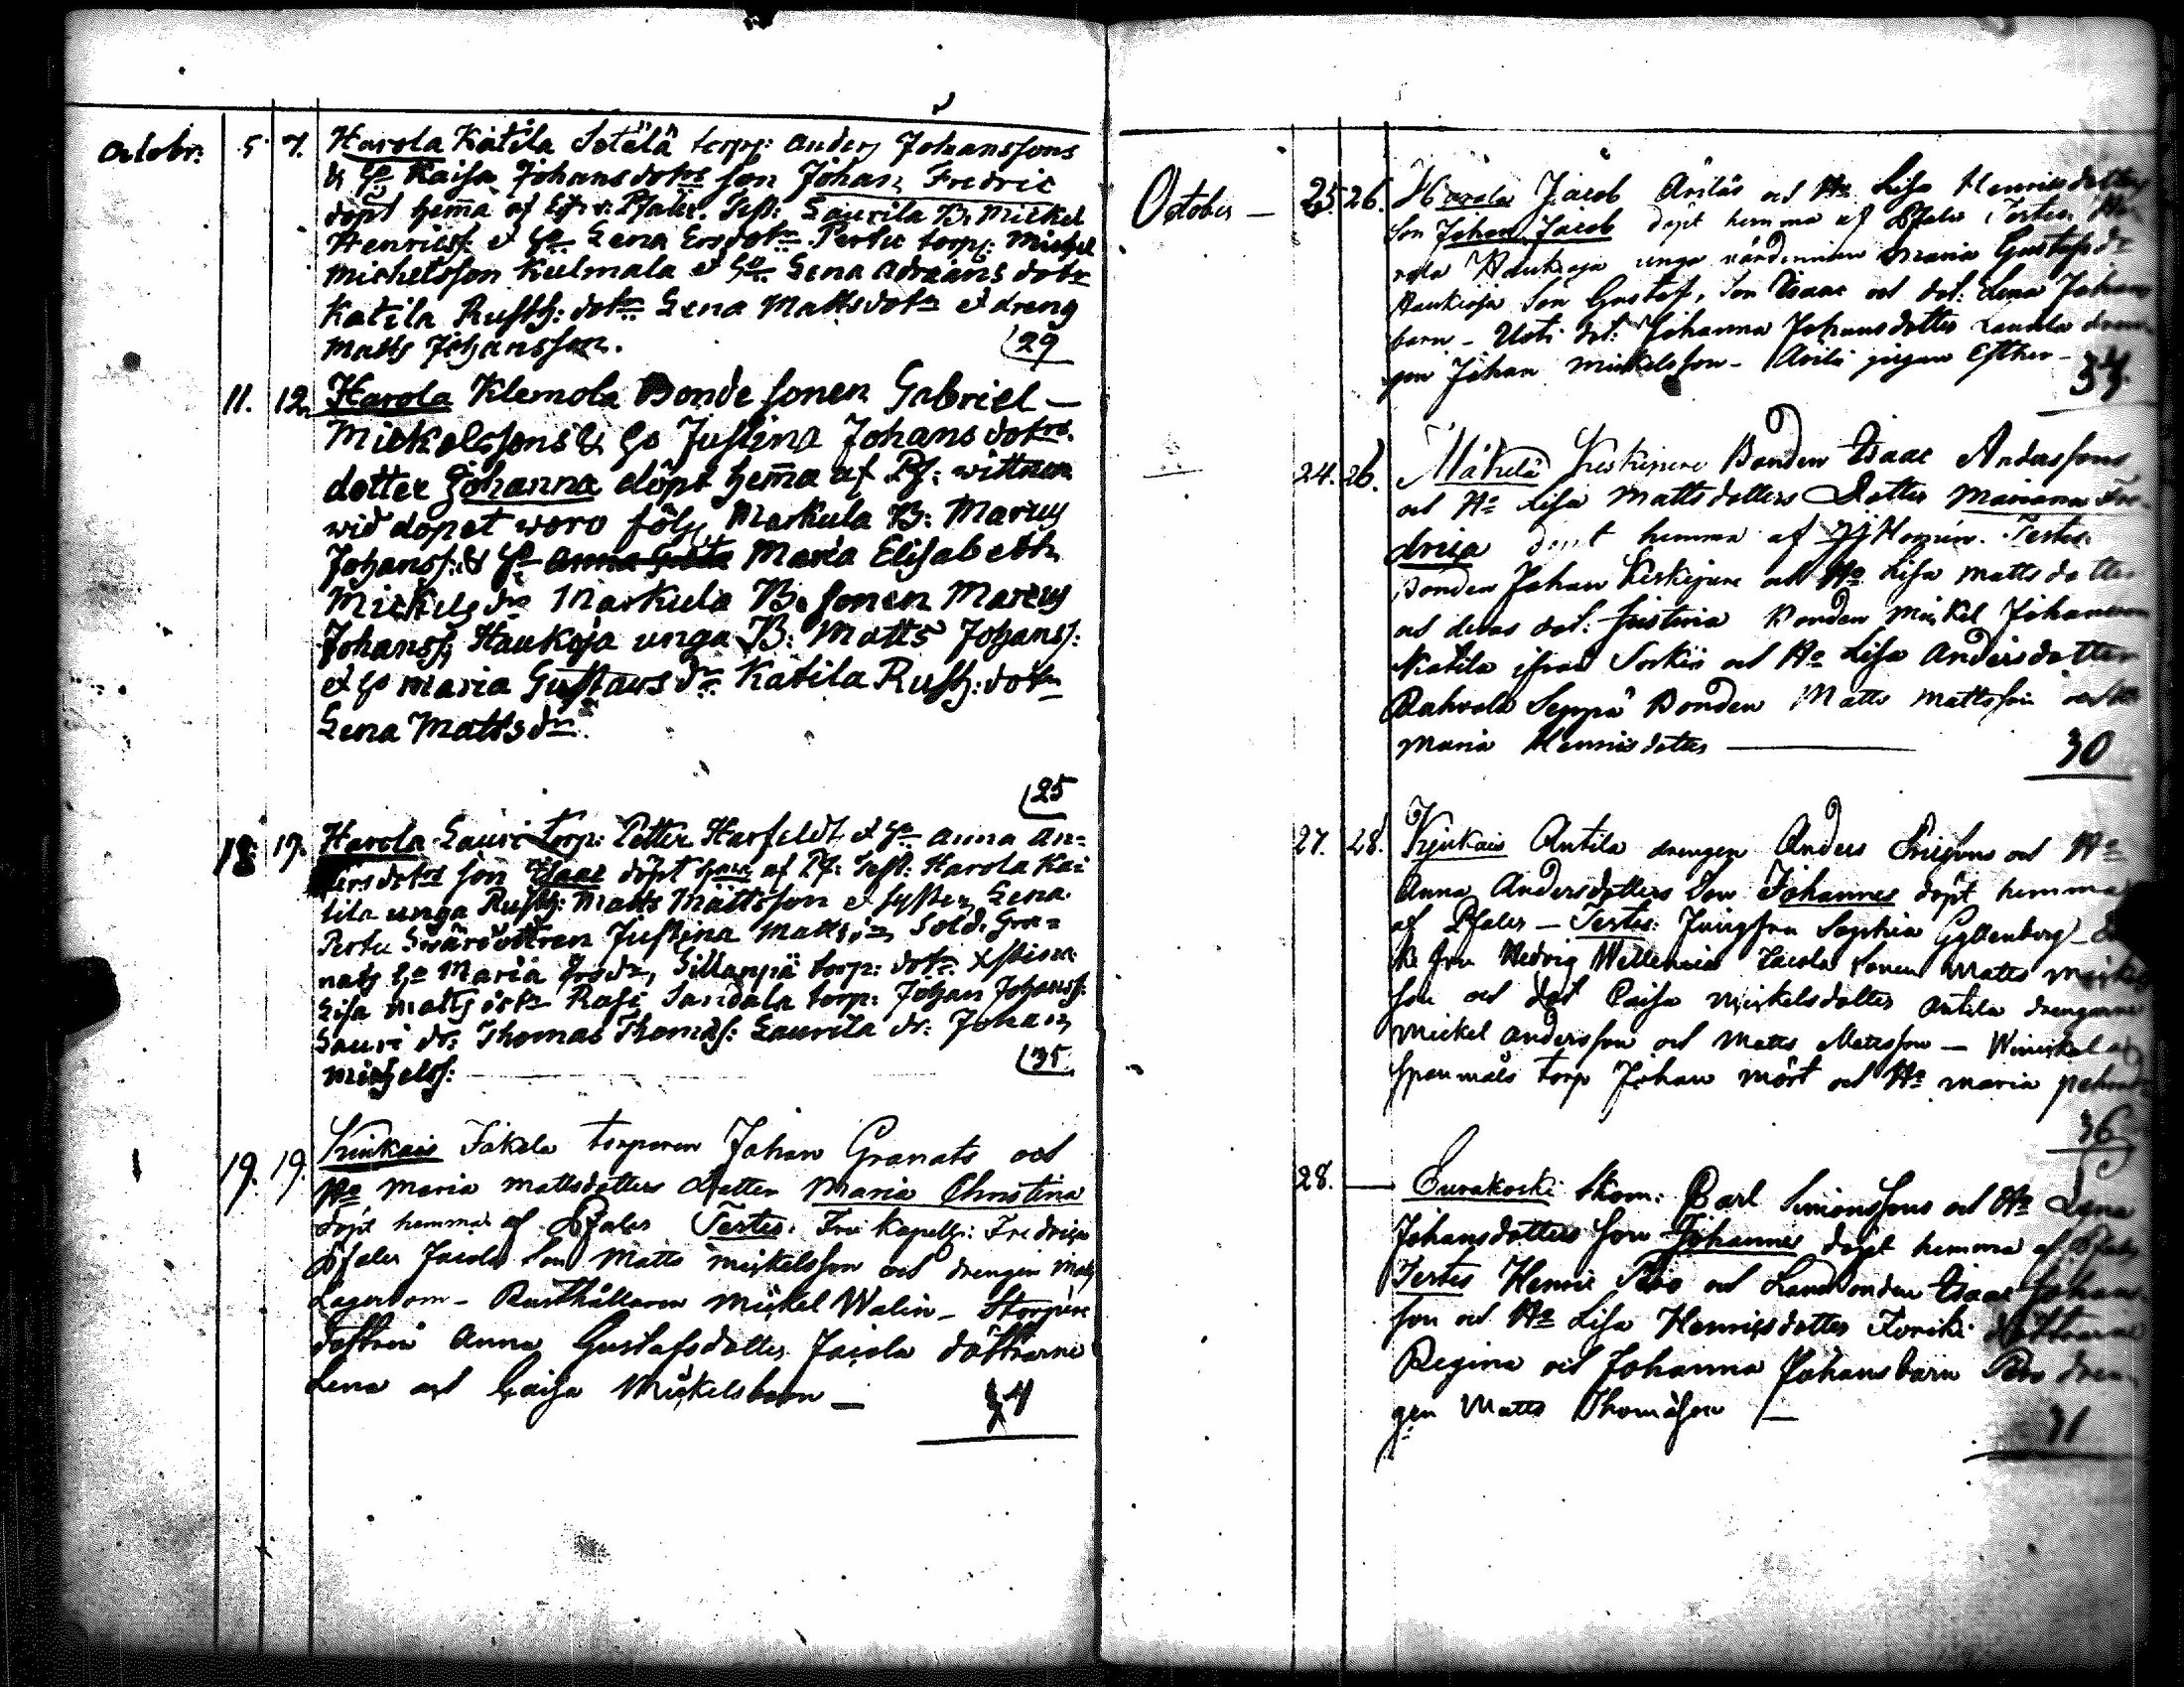 Octobr: 5 7. Harola Katila Sotälä torp: Anders Johanssons
& Ho Kaisa Johansdotrs son Johan Fredric
döpt hemma af Pfaler. Test: Laurila B: Mickel
Henricss: et Ho Lena Ersdotr Perttu torp: Michel
Michelsson Kulmala et Ho Lena Adrians dotr
Katila Rusth: dotrn Lena Mattsdotr et dreng
Matts Johansson.
29
11. 12. Harola Klemola Bonde sonen Gabriel
Mickelssons & Ho Justina Johans dotrs
dotter Johanna döpt hemma af Pf: wittnen
wid döpet woro följ. Markula B: Marcus
Johanss: & Ho Anna Greta Maria Elisabeth
Mickels dr Markula B. sonen Marcus
Johanss; Haukoja unga B: Matts Johanss:
et Ho Maria Gustavs dr Katila Rusth: dotr
Lena Matts dr
25
18 19. Harola Lauri Torp: Petter Harfeldt et Ho Anna An=
dersdotrs son Isaac döpt hem: af Pf: Test: Harola Ka=
tila unga Rusth: Matts Mattsson et syster Lena
Perttu Justina Matts dr, Sold: Gra=
nats Ho Maria dr, Sillanpä torp: dotr
Lisa Matts dotr Rasi Sandala torp: Johan Johanss:
Lauri dr: Thomas Thomass: Laurila dr: Johan
Michelss:
35
19. 19. Kiukais Jakola torparen Johan Granats och
Ho Maria Mattsdotters Dotter Maria Christina
döpt hemma af Pfaler Testes: Fru Kapell: Fredrica
Pfaler Jacola Son Matts Mickelsson och drengen Matts
Lagerbom - Rusthållaren Mickel Walin -
Anna Gustafsdotter Jacola döttrarne
Lena och Caisa Mickelsbarn
4
October 25. 26. Harola Jacob Avilas och Ho Lisa Henricsdotters
Son Johan Jacob döpt hemma af Pfaler Testes: Ha-
rola Haukioja unga värdinnan Maria Gustafs dr
Haukioja Son Gustaf, Son Isaac och dot: Lena Johans
barn - Uoti dot: Johanna Johansdotter dren-
gen Johan Mickelsson - Avila pigan Esther -
34.
24. 26. Mäkelä Keskipere Bonden Isaac Anderssons
och Ho Lisa Mattsdotters Dotter Mariana Fre-
drica döpt hemma af Testes
Bonden Johan Keskipere och Ho Lisa Mattsdotter
och deras dot: Justina Bonden Mickel Johansson
Katila ifrån Sorkis och Ho Lisa Andersdotter
Seppä Bonden Matts Mattsson och Ho
Maria Henricsdotter
30
27. 28. Kjukais Antila drengen Anders Ericsons och Ho
Anna Andersdotters Son Johannes döpt hemma
af Pfaler - Testes: Jungfru Sophia Gyllenberg
Fru Hedvig Jacola sonen Matts Mickels
son och dot Caisa Mickelsdotter Antila drengarne
Mickel Andersson och Matts Matsson -
torp Johan Mört och Ho Maria
36
28. Eurakoski Skom: Carl Simonssons och Ho Lena
Johansdotters Son Johannes döpt hemma af Pfaler
Testes Henric och Landbonden Isaac Johans
son och Ho Lisa Henricsdotter döttrarne
Regina och Johanna Johansbarn dren-
gen Matts Thomasson
31